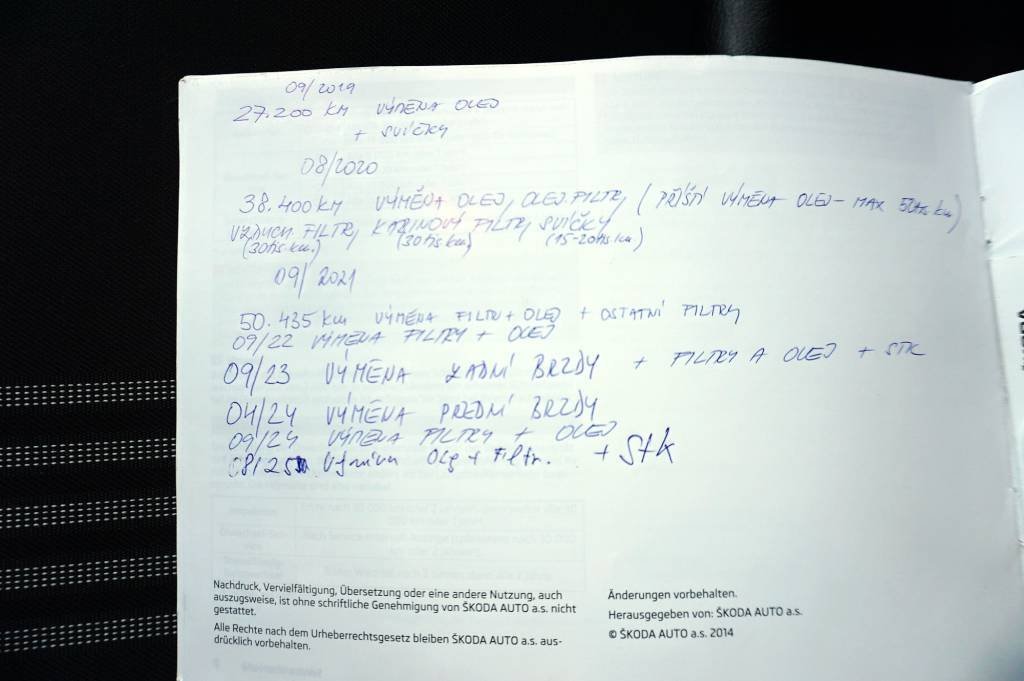 09/2019
27.200 KM VÝMĚNA OLEJ
+ SVÍČKY
08/2020
38.400 KM VÝMĚNA OLEJ, OLEJ.FILTR, (PŘÍŠTÍ VÝMĚNA OLEJ - MAX 50tis km)
VZDUCH. FILTR, KABINOVÝ FILTR, SVÍČKY
(30tis.km.) (30tis km) (15-20tis km)
09/2021
50.435 km VÝMĚNA FILTR + OLEJ + OSTATNÍ FILTRY
09/22 VÝMĚNA FILTRY + OLEJ
09/23 VÝMĚNA ZADNÍ BRZDY + FILTRY A OLEJ + STK
04/24 VÝMĚNA PŘEDNÍ BRZDY
09/24 VÝMĚNA FILTRY + OLEJ
08/25 + Filtr. + Stk
Nachdruck, Vervielfältigung, Übersetzung oder eine andere Nutzung, auch
auszugsweise, ist ohne schriftliche Genehmigung von ŠKODA AUTO a.s. nicht
gestattet.
Alle Rechte nach dem Urheberrechtsgesetz bleiben ŠKODA AUTO a.s. aus-
drücklich vorbehalten.
Änderungen vorbehalten.
Herausgegeben von: ŠKODA AUTO a.s.
© ŠKODA AUTO a.s. 2014